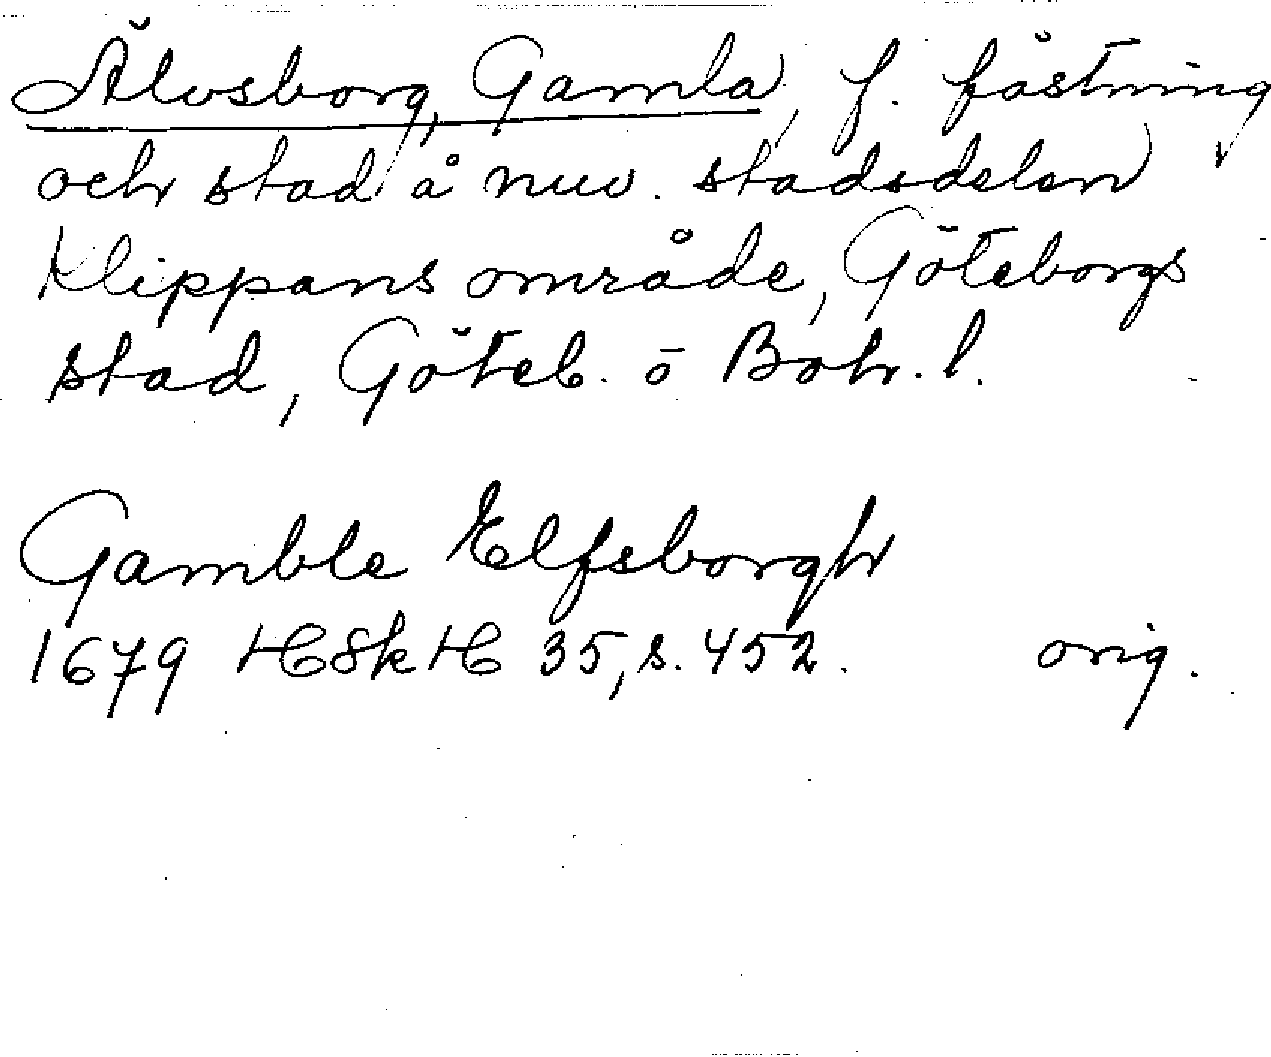 Älvsborg, Gamla, f. fästning
och stad å nuv. stadsdelen
Klippans område, Göteborgs
stad, Göteb. o Boh. l.
Gamble Elfsborgh
1679 HSkH 35, s. 452. orig.